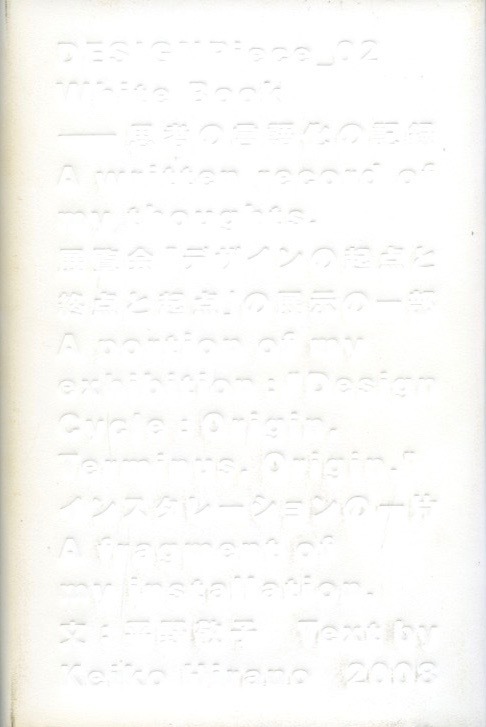 DESIGNPiece_02
White Book
——思考の言語化の記録
A written record of
my thoughts.
展覧会「デザインの起点と
終点と起点」の展示の一部
A portion of my
exhibition : "Design
Cycle : Origin.
Terminus. Origin."
インスタレーションの一片
A fragment of
my installation.
文：平野敬子　Text by
Keiko Hirano　2008